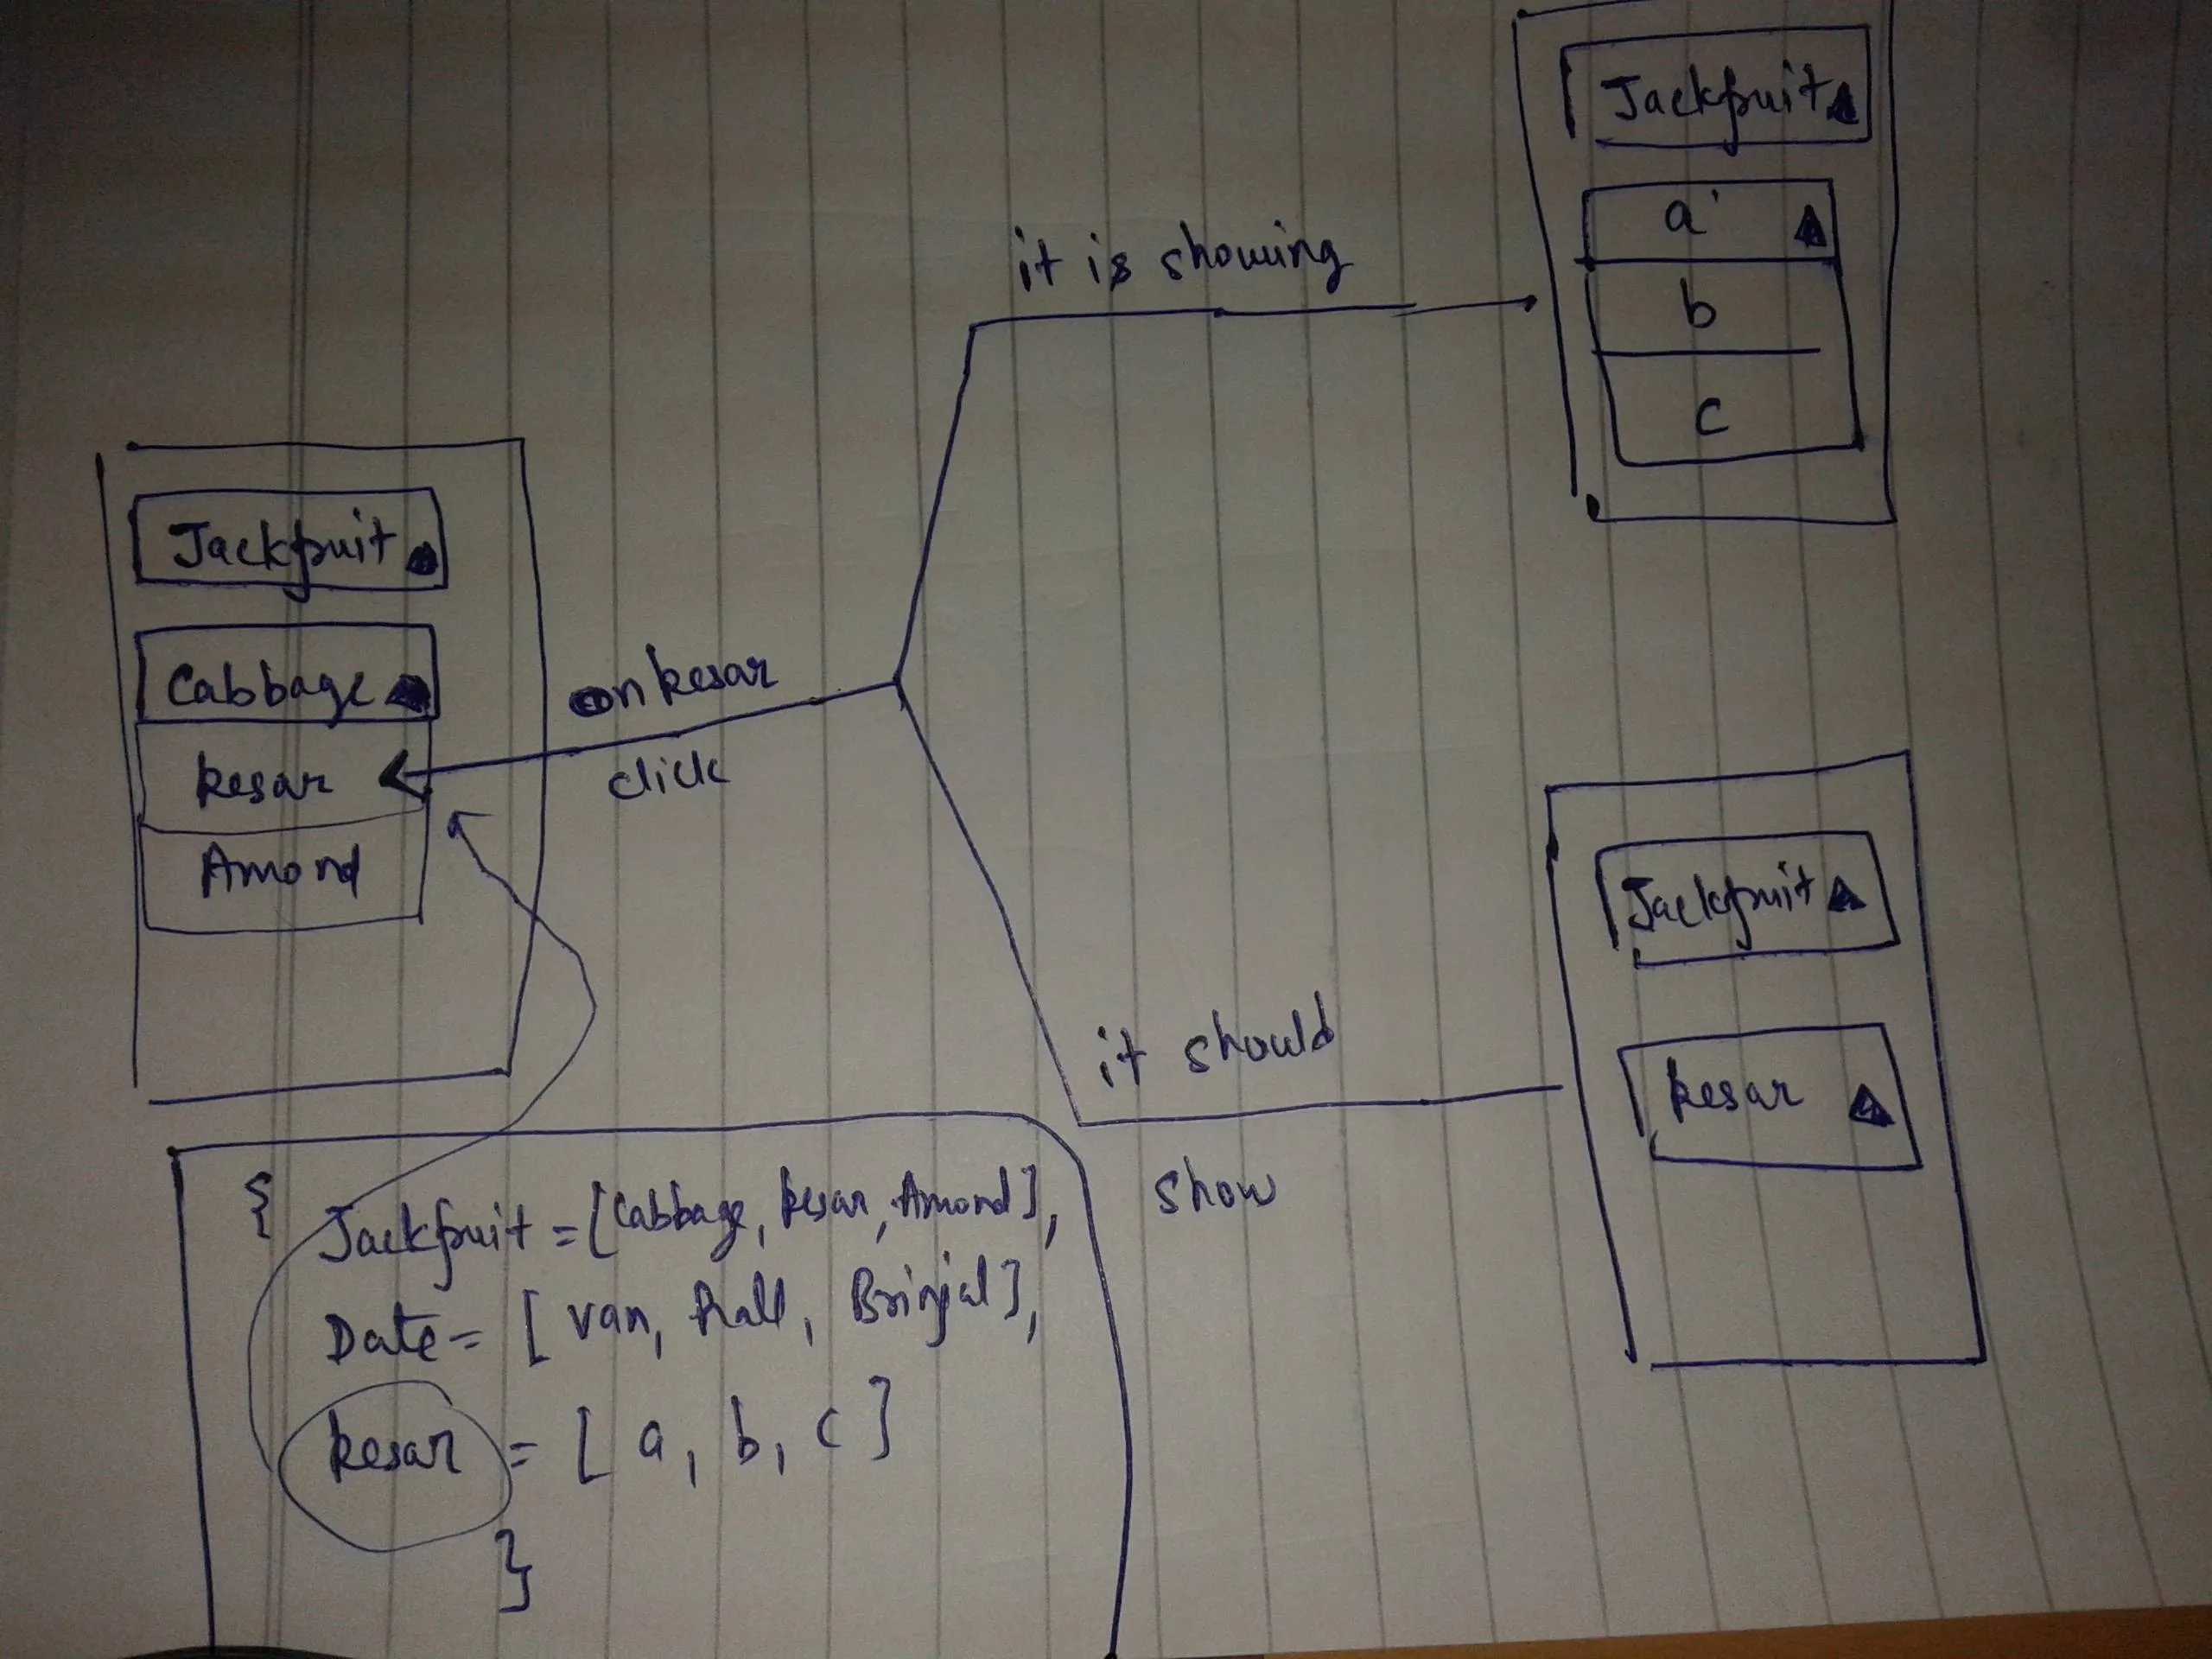 Jackfruit
a
b
c
it is showing
Jackfruit
Cabbage
kesar
Amond
on kesar
click
Jackfruit
kesar
it should
show
{
Jackfruit = [Cabbage, kesar, Amond],
Date = [van, , Brinjal],
kesar = [a, b, c]
}